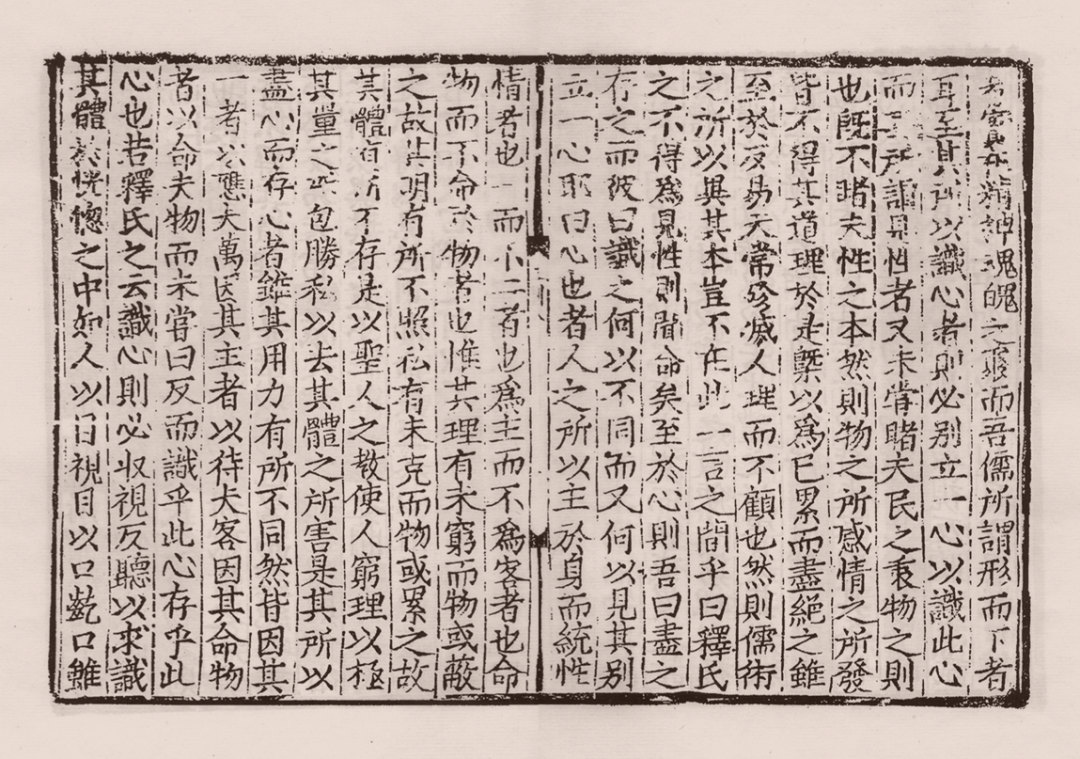 者實在精神魂魄之聚而吾儒所謂形而下者
耳至其所以識心者則必别立一心以識此心
而其所謂見性者又未嘗睹夫民之秉物之則
也既不睹夫性之本然則物之所感情之所發
皆不得其道理於是槩以爲已累而盡絕之雖
至於反易天常殄滅人理而不顧也然則儒術
之所以異其本豈不在此一言之間乎曰釋氏
之不得爲見性則聞命矣至於心則吾曰盡之
存之而彼曰識之何以不同而又何以見其别
立一心耶曰心也者人之所以主於身而統性
情者也一而不二者也爲主而不爲客者也命
物而不命於物者也惟其理有未窮而物或蔽
之故其明有所不照私有未克而物或累之故
其體有所不存是以聖人之教使人窮理以極
其量之所包勝私以去其體之所害是其所以
盡心而存心者雖其用力有所不同然皆因其
一者以應夫萬因其主者以待夫客因其命物
者以命夫物而未嘗曰反而識乎此心存乎此
心也若釋氏之云識心則必收視反聽以求識
其體於恍惚之中如人以目視目以口齕口雖